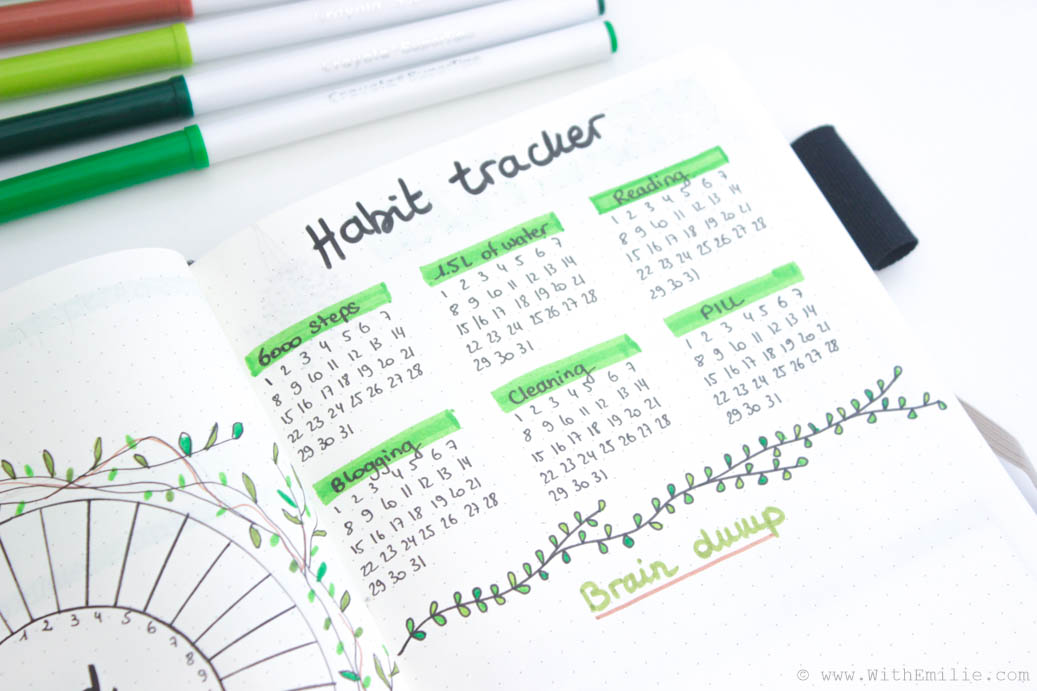 Crayola
Crayola
Habit tracker
6000 steps
1 2 3 4 5 6 7
8 9 10 11 12 13 14
15 16 17 18 19 20 21
22 23 24 25 26 27 28
29 30 31
1.5L of water
1 2 3 4 5 6 7
8 9 10 11 12 13 14
15 16 17 18 19 20 21
22 23 24 25 26 27 28
29 30 31
Reading
1 2 3 4 5 6 7
8 9 10 11 12 13 14
15 16 17 18 19 20 21
22 23 24 25 26 27 28
29 30 31
Blogging
1 2 3 4 5 6 7
8 9 10 11 12 13 14
15 16 17 18 19 20 21
22 23 24 25 26 27 28
29 30 31
Cleaning
1 2 3 4 5 6 7
8 9 10 11 12 13 14
15 16 17 18 19 20 21
22 23 24 25 26 27 28
29 30 31
PILL
1 2 3 4 5 6 7
8 9 10 11 12 13 14
15 16 17 18 19 20 21
22 23 24 25 26 27 28
29 30 31
Brain dump
1 2 3 4 5 6 7 8 9
© www.WithEmilie.com